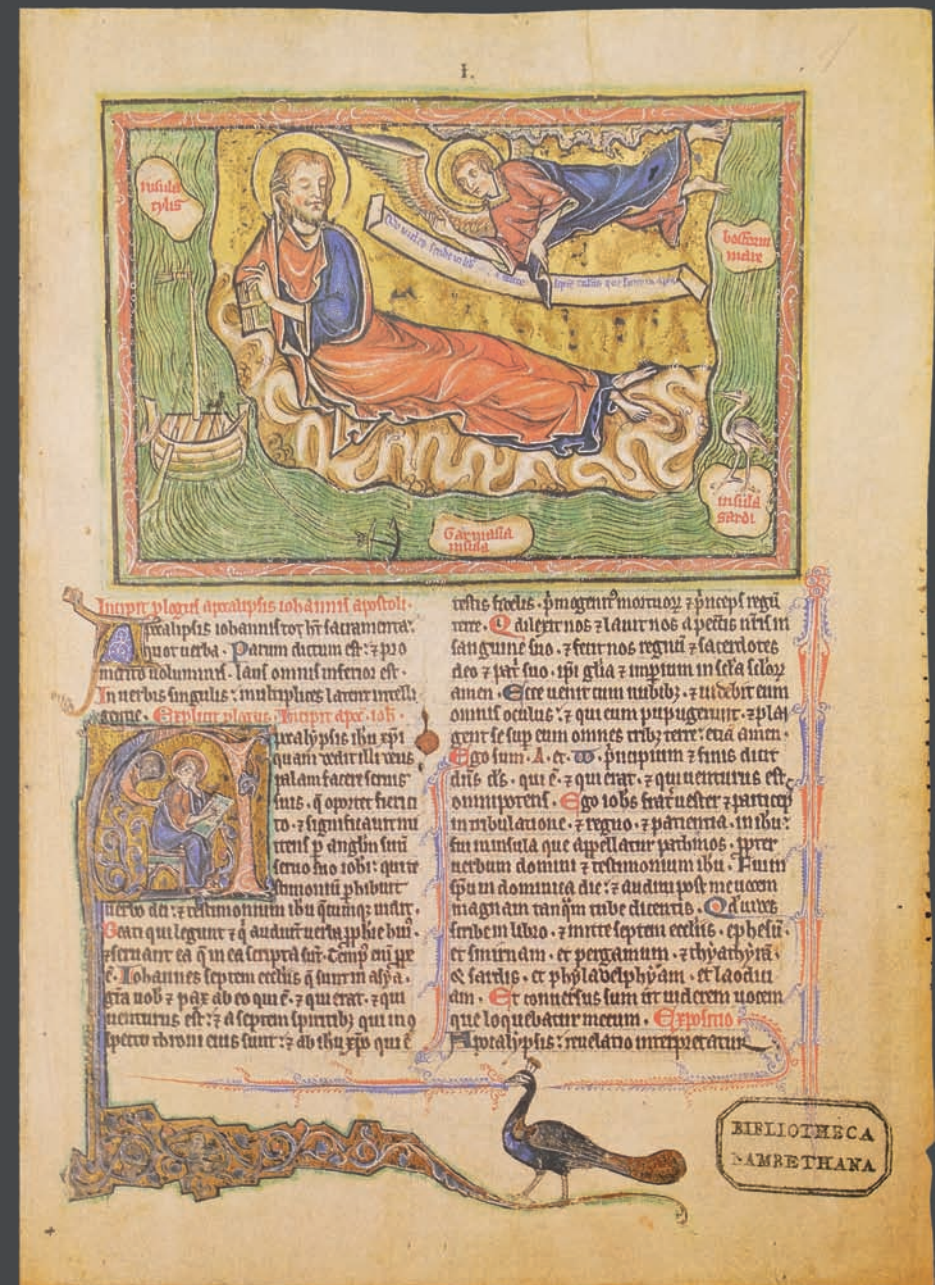 I.
insula
tylis
bosforum
mare
quod vides scribe in libro et mitte septem ecclesiis que sunt in asya
insula
sardi
Garmasia
insula
Incipit plogus apocalipsis iohannis apostoli.
Apocalipsis iohannis tot ht sacramenta:
quot uerba. Parum dictum est: ⁊ pro
merito uoluminis. laus omnis inferior est.
In uerbis singulis: multiplices latent intelli
gentie. Explicit plogus. Incipit apoc̄ ioh̄.
Apocalypsis ihu xp̄i
quam dedit illi deus
palam facere seruis
suis. q̄ oportet fieri ci
to. ⁊ significauit mi
ttens p̄ anglm̄ suū
seruo suo iohi: qui te
stimoniū phibuit
uerbo dei: ⁊ testimonium ihu q̄cumq; uidit.
Beati qui legunt ⁊ q̄ audiūt uerba pphīe hui᷒.
⁊ seruant ea q̄ in ea scripta sūt. Temp᷒ eni᷑ ppe
ē. Iohannes septem eccliis q̄ sunt in asya.
gr̄a uob̄ ⁊ pax ab eo qui ē. ⁊ qui erat. ⁊ qui
uenturus est: ⁊ a septem spiritib; qui in 9
spectu throni eius sunt: ⁊ ab ihu xp̄o qui ē
testis fidelis. p̄mogenit᷒ mortuoꝝ ⁊ p̄nceps regū
terre. Q̄ dilexit nos ⁊ lauit nos a peccatis nr̄is in
sanguine suo. ⁊ fecit nos regnū ⁊ sacerdotes
deo ⁊ patri suo. ipi gl̄ia ⁊ imp̄ium in scl̄a scl̄oꝝ
amen. Ecce uenit cum nubib;. ⁊ uidebit eum
omnis oculus: ⁊ qui eum pupugerunt. ⁊ plan
gent se sup eum omnes trib; terre: etiā amen.
Ego sum. A. et. ω. p̄ncipium ⁊ finis dicit
dn̄s ds̄. qui ē. ⁊ qui erat. ⁊ qui uenturus est
omnipotens. Ego iohs̄ frat̄ uester ⁊ particeps
in tribulatione. ⁊ regno. ⁊ patientia. in ihu:
fui in insula que appellatur pathmos. ppter
uerbum domini ⁊ testimonium ihu. Fui in
sp̄u in dominica die: ⁊ audiui post me uocem
magnam tanq̄m tube dicentis. Qd̄ uides
scribe in libro. ⁊ mitte septem eccliis. ephesū.
et smirnam. et pergamum. ⁊ thyathyrā.
& sardis. et phyladelphyam. et laodici
am. Et conuersus sum ut uiderem uocem
que loquebatur mecum. Expositio.
Apocalypsis: reuelatio interpretatur.
BIBLIOTHECA
LAMBETHANA